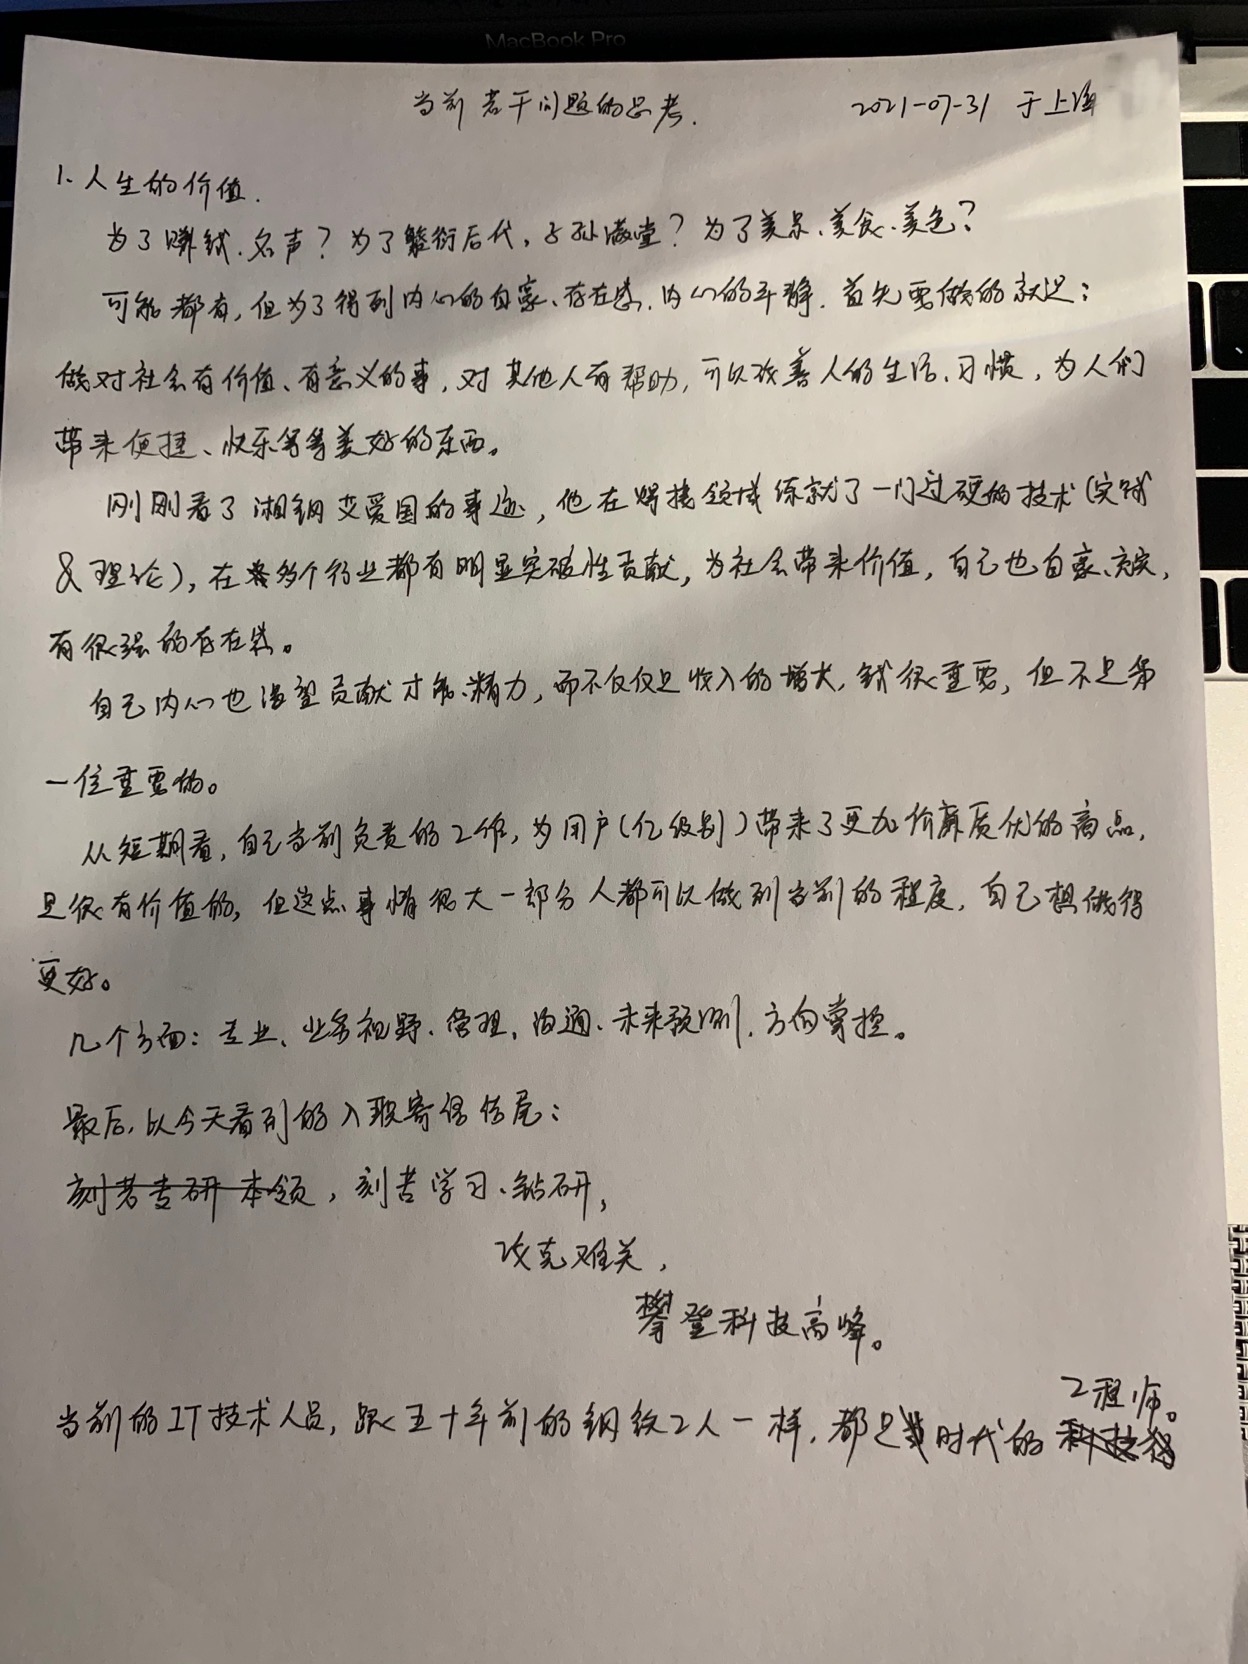 MacBook Pro
当前若干问题的思考. 2021-07-31 于上海
1. 人生的价值.
为了赚钱、名声？为了繁衍后代，子孙满堂？为了美景、美食、美色？
可能都有，但为了得到内心的自豪、存在感、内心的平静，首先要做的就是：
做对社会有价值、有意义的事，对其他人有帮助，可以改善人的生活、习惯，为人们
带来便捷、快乐等等美好的东西。
刚刚看了湘钢艾爱国的事迹，他在焊接领域练就了一门过硬的技术(实践
&理论)，在多个行业都有明显突破性贡献，为社会带来价值，自己也自豪、充实，
有很强的存在感。
自己内心也渴望贡献才能、精力，而不仅仅是收入的增大，钱很重要，但不是第
一位重要的。
从短期看，自己当前负责的工作，为用户(亿级别)带来了更加价廉质优的商品，
是很有价值的，但这点事情很大一部分人都可以做到当前的程度，自己想做得
更好。
几个方面：专业、业务视野、管理、沟通、未来预测、方向掌控。
最后，以今天看到的入职寄语结尾：
刻苦专研本领，刻苦学习、钻研，
攻克难关，
攀登科技高峰。
工程师。
当前的IT技术人员，跟五十年前的钢铁工人一样，都是时代的